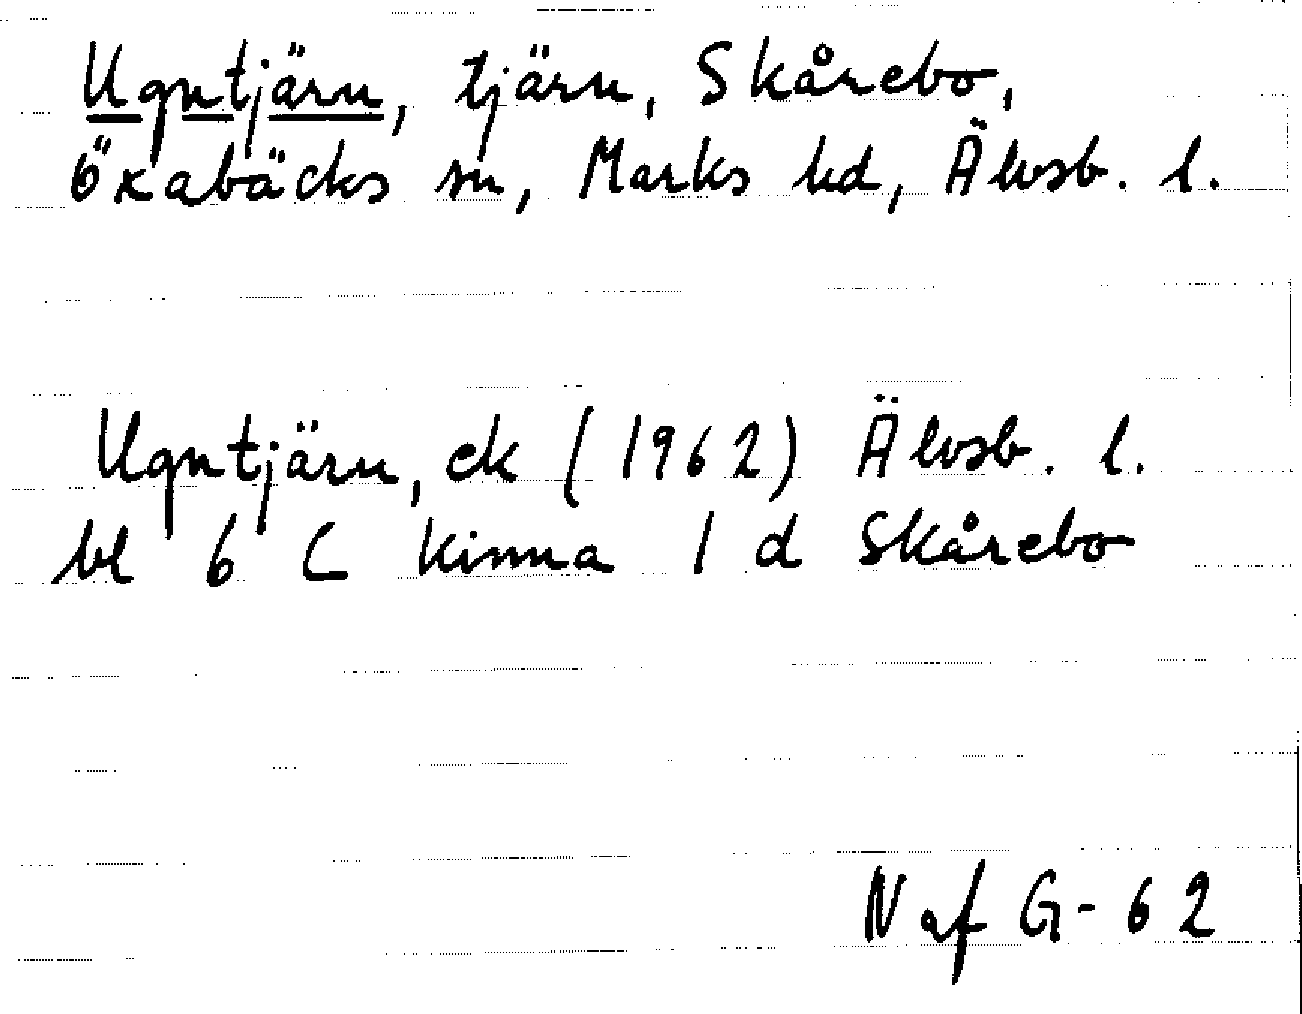 Ugntjärn, tjärn, Skårebo,
Öxabäcks sn, Marks hd, Älvsb. l.
Ugntjärn, ek (1962) Älvsb. l.
bl 6 C Kinna 1 d Skårebo
N af G-62